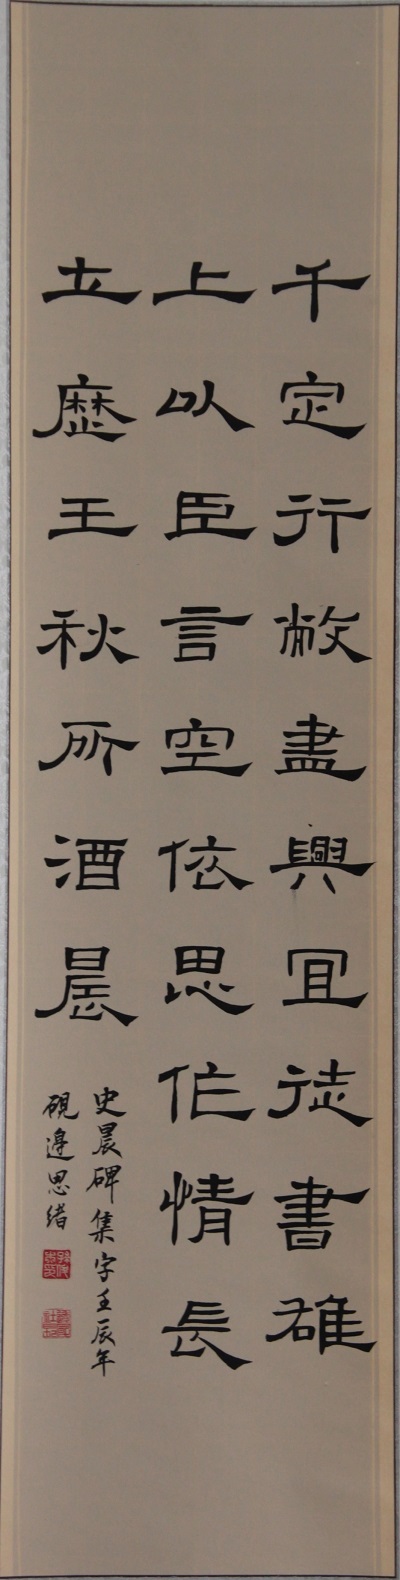 千定行敝盡興宜徒書雄
上以臣言空依思作情長
立歷王秋所酒晨
史晨碑集字壬辰年
硯邊思緒